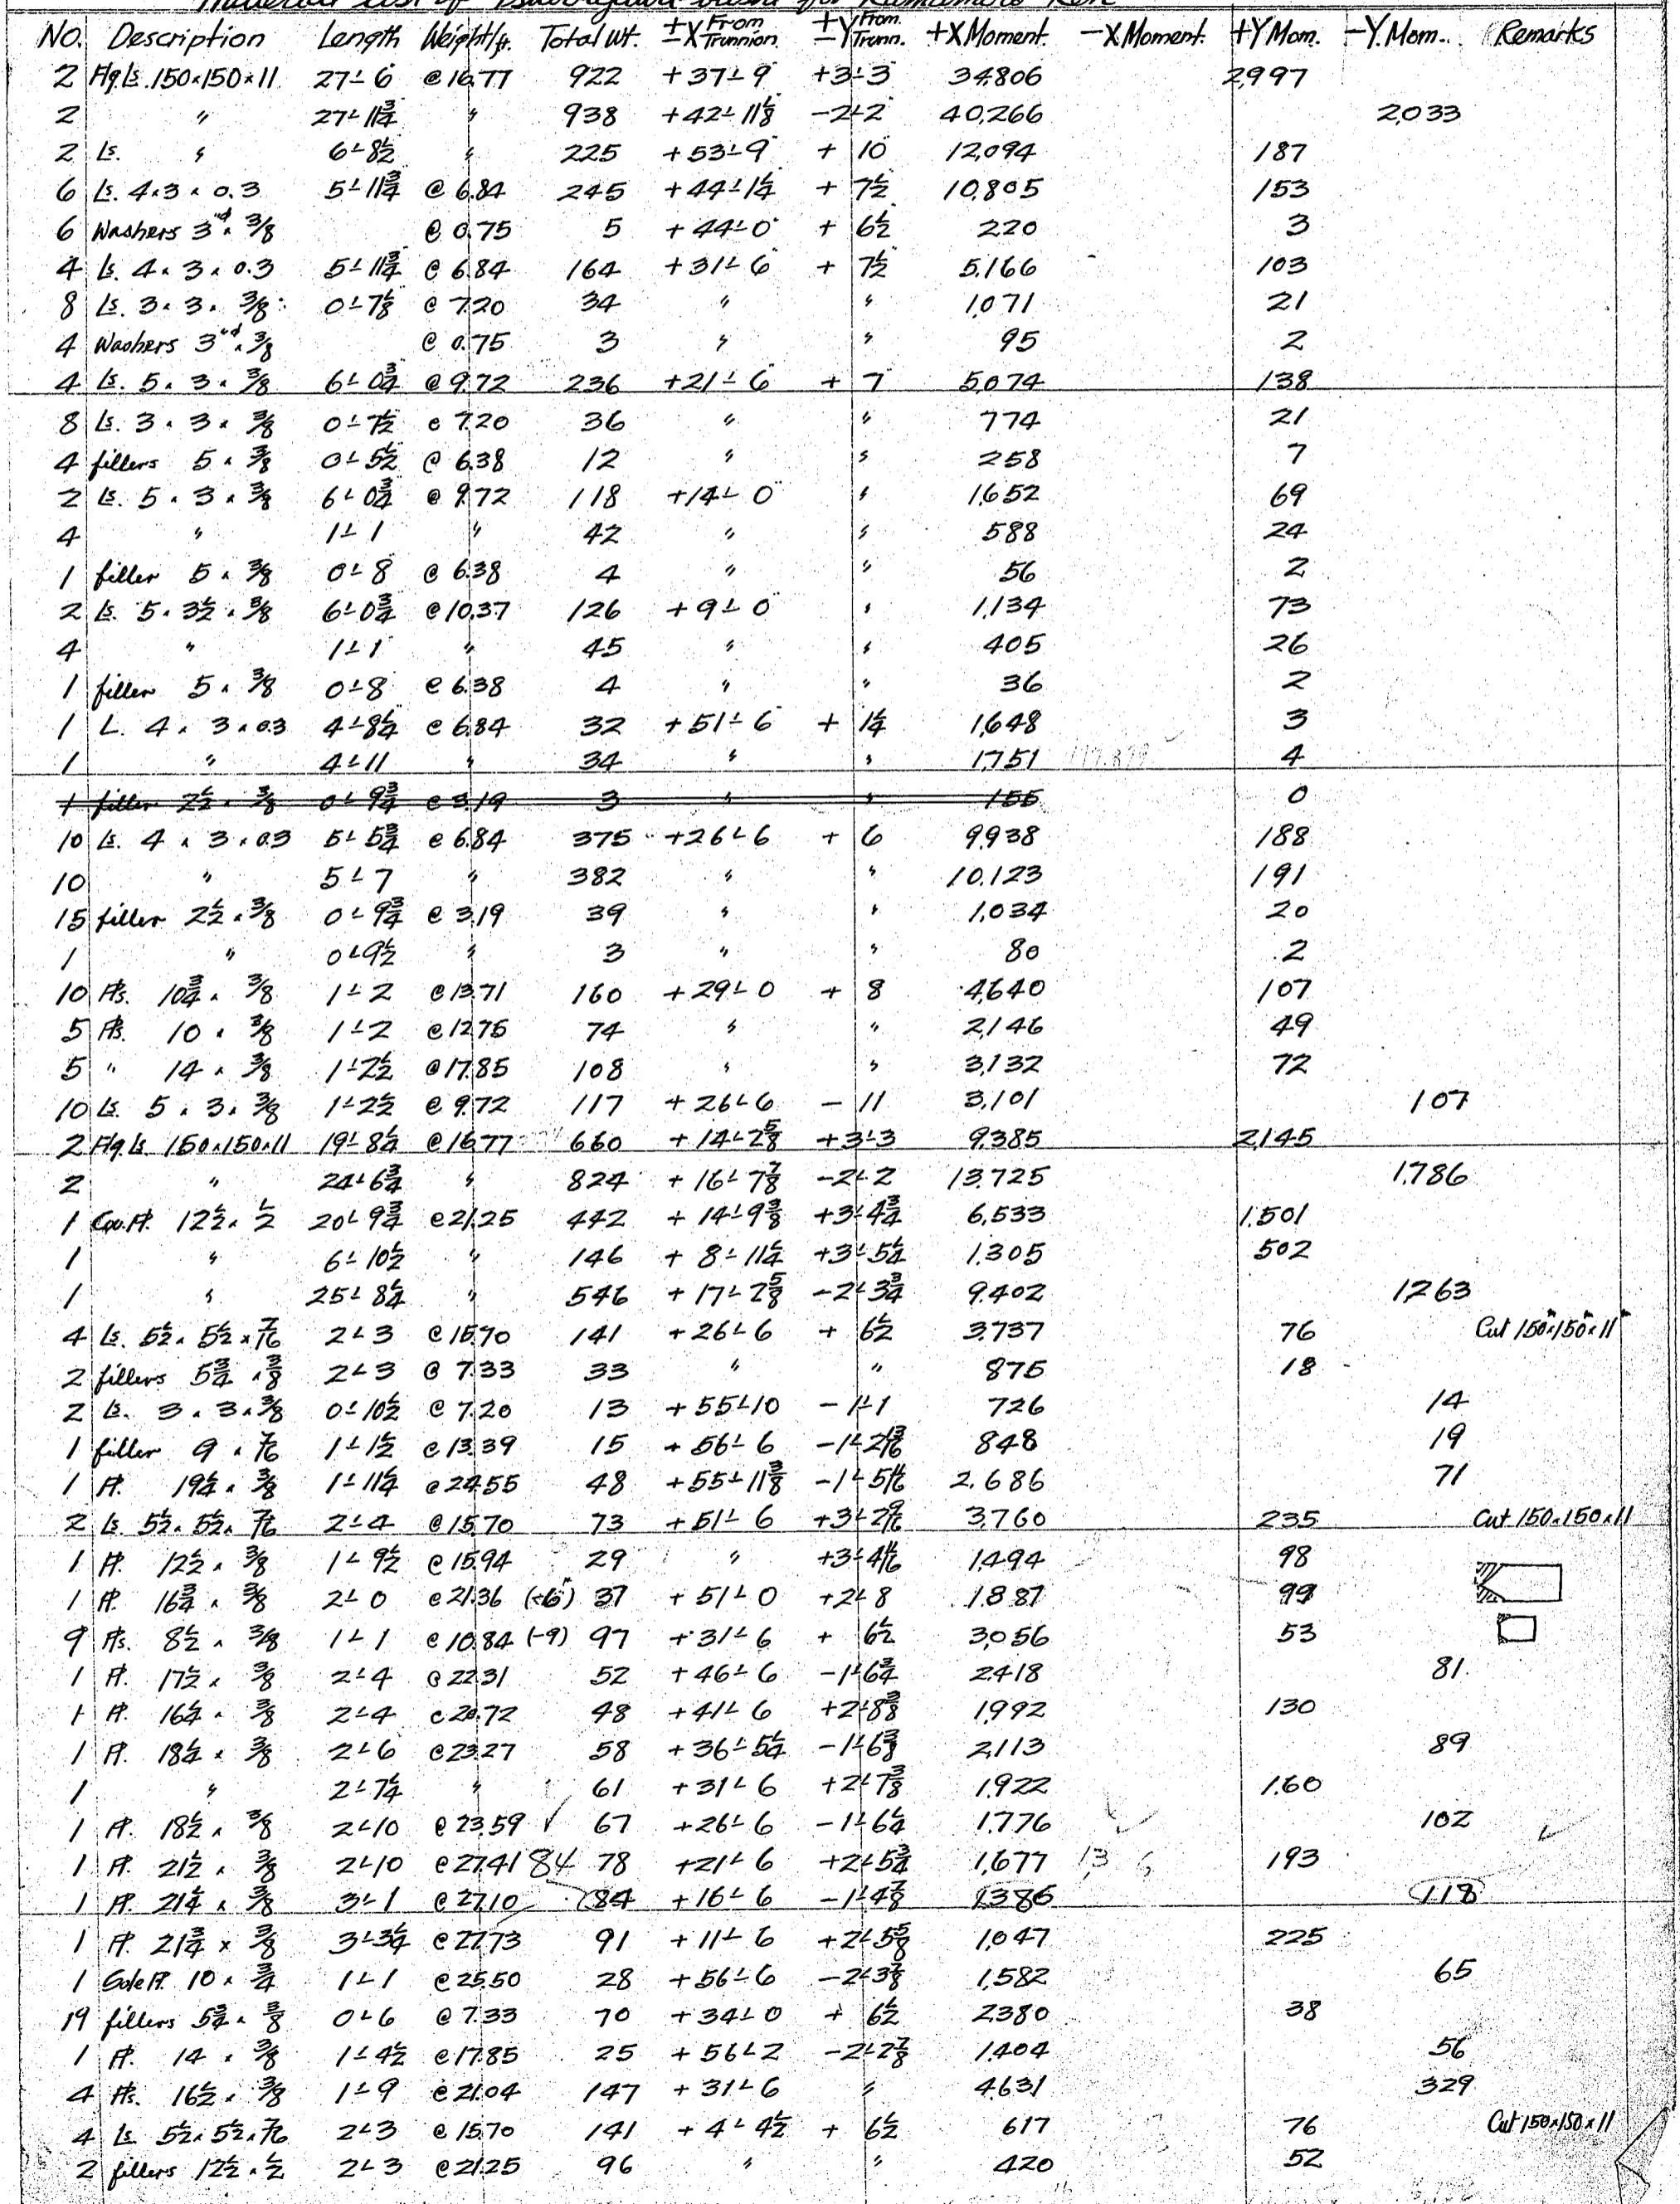 Material List of
NO. Description Length Weight/ft. Total Wt. ±X From Trunnion ±Y From Trunn. +X Moment. -X Moment. +Y Mom. -Y. Mom. Remarks
2 Flg. Ls. 150×150×11 27'-6 @ 16.77 922 +37'-9" +3'-3" 34,806 2,997
2 " 27'-11¾ " 938 +42'-11⅛ -2'-2" 40,266 2,033
2 Ls. " 6'-8½ " 225 +53'-9" + 10" 12,094 187
6 Ls. 4×3×0.3 5'-11¾ @ 6.84 245 +44'-1¼ + 7½ 10,805 153
6 Washers 3"ø × 3/8 @ 0.75 5 +44'-0" + 6½ 220 3
4 Ls. 4×3×0.3 5'-11¾ @ 6.84 164 +31'-6 + 7½ 5,166 103
8 Ls. 3×3×3/8 0'-7⅛ @ 7.20 34 " " 1,071 21
4 Washers 3"ø × 3/8 @ 0.75 3 " " 95 2
4 Ls. 5×3×3/8 6'-0¾ @ 9.72 236 +21'-6 + 7 5,074 138
8 Ls. 3×3×3/8 0'-7½ @ 7.20 36 " " 774 21
4 fillers 5×3/8 0'-5½ @ 6.38 12 " " 258 7
2 Ls. 5×3×3/8 6'-0¾ @ 9.72 118 +14'-0" " 1,652 69
4 " 1'-1 " 42 " " 588 24
1 filler 5×3/8 0'-8 @ 6.38 4 " " 56 2
2 Ls. 5×3½×3/8 6'-0¾ @ 10.37 126 +9'-0 " 1,134 73
4 " 1'-1 " 45 " " 405 26
1 filler 5×3/8 0'-8 @ 6.38 4 " " 36 2
1 L. 4×3×0.3 4'-8¼ @ 6.84 32 +51'-6 + 1¼ 1,648 3
1 " 4'-11 " 34 " " 1,751 4
1 filler 2½×3/8 0'-9¾ @ 3.19 3 " " 155 0
10 Ls. 4×3×0.3 5'-5¾ @ 6.84 375 +26'-6 + 6 9,938 188
10 " 5'-7 " 382 " " 10,123 191
15 filler 2½×3/8 0'-9¾ @ 3.19 39 " " 1,034 20
1 " 0'-9½ " 3 " " 80 2
10 Pls. 10¾×3/8 1'-2 @ 13.71 160 +29'-0 + 8 4,640 107
5 Pls. 10×3/8 1'-2 @ 12.75 74 " " 2,146 49
5 " 14×3/8 1'-2½ @ 17.85 108 " " 3,132 72
10 Ls. 5×3×3/8 1'-2½ @ 9.72 117 +26'-6 - 11 3,101 107
2 Flg. Ls. 150×150×11 19'-8¼ @ 16.77 660 +14'-2⅝ +3'-3 9,385 2,145
2 " 24'-6¾ " 824 +16'-7⅞ -2'-2 13,725 1,786
1 Cov. Pl. 12½×½ 20'-9¾ @ 21.25 442 +14'-9⅜ +3'-4¾ 6,533 1,501
1 " 6'-10½ " 146 +8'-11¼ +3'-5¼ 1,305 502
1 " 25'-8¼ " 546 +17'-2⅝ -2'-3¾ 9,402 1,263
4 Ls. 5½×5½×7/16 2'-3 @ 15.70 141 +26'-6 + 6½ 3,737 76 Cut 150×150×11
2 fillers 5¾×3/8 2'-3 @ 7.33 33 " " 875 18
2 Ls. 3×3×3/8 0'-10½ @ 7.20 13 +55'-10 -1'-1 726 14
1 filler 9×7/16 1'-1½ @ 13.39 15 +56'-6 -1'-2 13/16 848 19
1 Pl. 19¼×3/8 1'-11¼ @ 24.55 48 +55'-11⅜ -1'-5 11/16 2,686 71
2 Ls. 5½×5½×7/16 2'-4 @ 15.70 73 +51'-6 +3'-2 9/16 3,760 235 Cut 150×150×11
1 Pl. 12½×3/8 1'-9½ @ 15.94 29 " +3'-4 11/16 1,494 98
1 Pl. 16¾×3/8 2'-0 @ 21.36 (-6) 37 +51'-0 +2'-8 1,887 99
9 Pls. 8½×3/8 1'-1 @ 10.84 (-9) 97 +31'-6 + 6½ 3,056 53
1 Pl. 17½×3/8 2'-4 @ 22.31 52 +46'-6 -1'-6¾ 2,418 81
1 Pl. 16¼×3/8 2'-4 @ 20.72 48 +41'-6 +2'-8⅜ 1,992 130
1 Pl. 18¼×3/8 2'-6 @ 23.27 58 +36'-5¼ -1'-6⅜ 2,113 89
1 " 2'-7¼ " 61 +31'-6 +2'-7⅜ 1,922 160
1 Pl. 18½×3/8 2'-10 @ 23.59 ✓ 67 +26'-6 -1'-6¼ 1,776 102
1 Pl. 21½×3/8 2'-10 @ 27.41 84 78 +21'-6 +2'-5¾ 1,677 13 193
1 Pl. 21¼×3/8 3'-1 @ 27.10 84 +16'-6 -1'-4⅞ 1,386 118
1 Pl. 21¾×3/8 3'-3¼ @ 27.73 91 +11'-6 +2'-5⅝ 1,047 225
1 Sole Pl. 10×¾ 1'-1 @ 25.50 28 +56'-6 -2'-3⅞ 1,582 65
19 fillers 5¾×3/8 0'-6 @ 7.33 70 +34'-0 + 6½ 2,380 38
1 Pl. 14×3/8 1'-4½ @ 17.85 25 +56'-2 -2'-2⅞ 1,404 56
4 Pls. 16½×3/8 1'-9 @ 21.04 147 +31'-6 " 4,631 329
4 Ls. 5½×5½×7/16 2'-3 @ 15.70 141 +4'-4½ + 6½ 617 76 Cut 150×150×11
2 fillers 12½×½ 2'-3 @ 21.25 96 " " 420 52